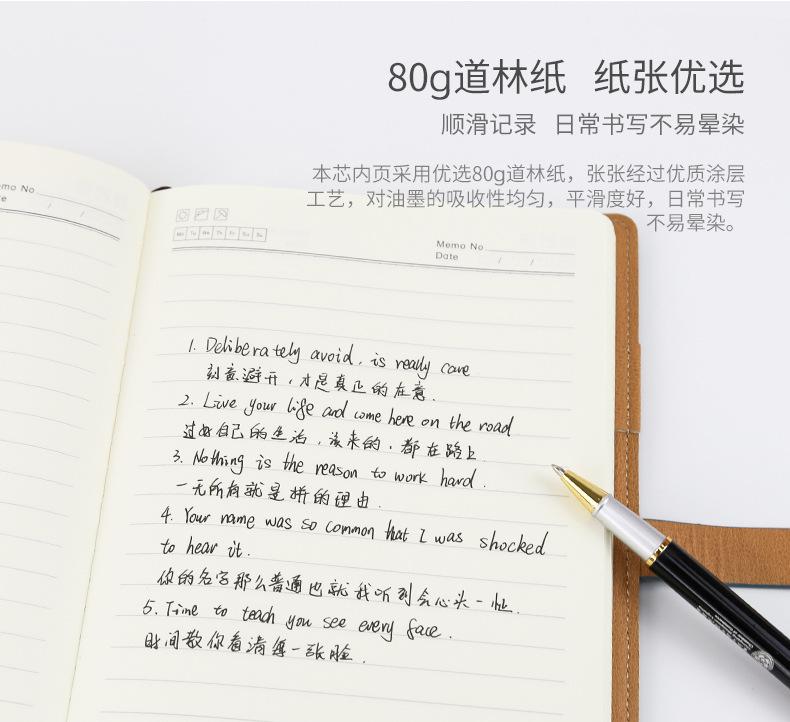 80g道林纸 纸张优选
顺滑记录 日常书写不易晕染
本芯内页采用优选80g道林纸，张张经过优质涂层
工艺，对油墨的吸收性均匀，平滑度好，日常书写
不易晕染。
emo No
te / /
Mo Tu We Th Fr Sa Su
Memo No
Date / /
1. Deliberately avoid, is really care
刻意避开，才是真正的在意.
2. Live your life and come here on the road
过好自己的生活，该来的，都在路上
3. Nothing is the reason to work hard.
一无所有就是拼的理由.
4. Your name was so common that I was shocked
to hear it.
你的名字那么普通也就我听到会心头一怔.
5. Time to teach you see every face.
时间教你看清每一张脸.